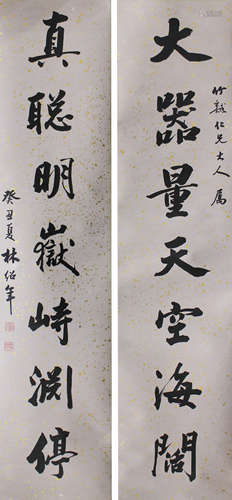 大器量天空海闊
竹龢仁兄大人屬
真聪明嶽峙淵停
癸丑夏林绍年